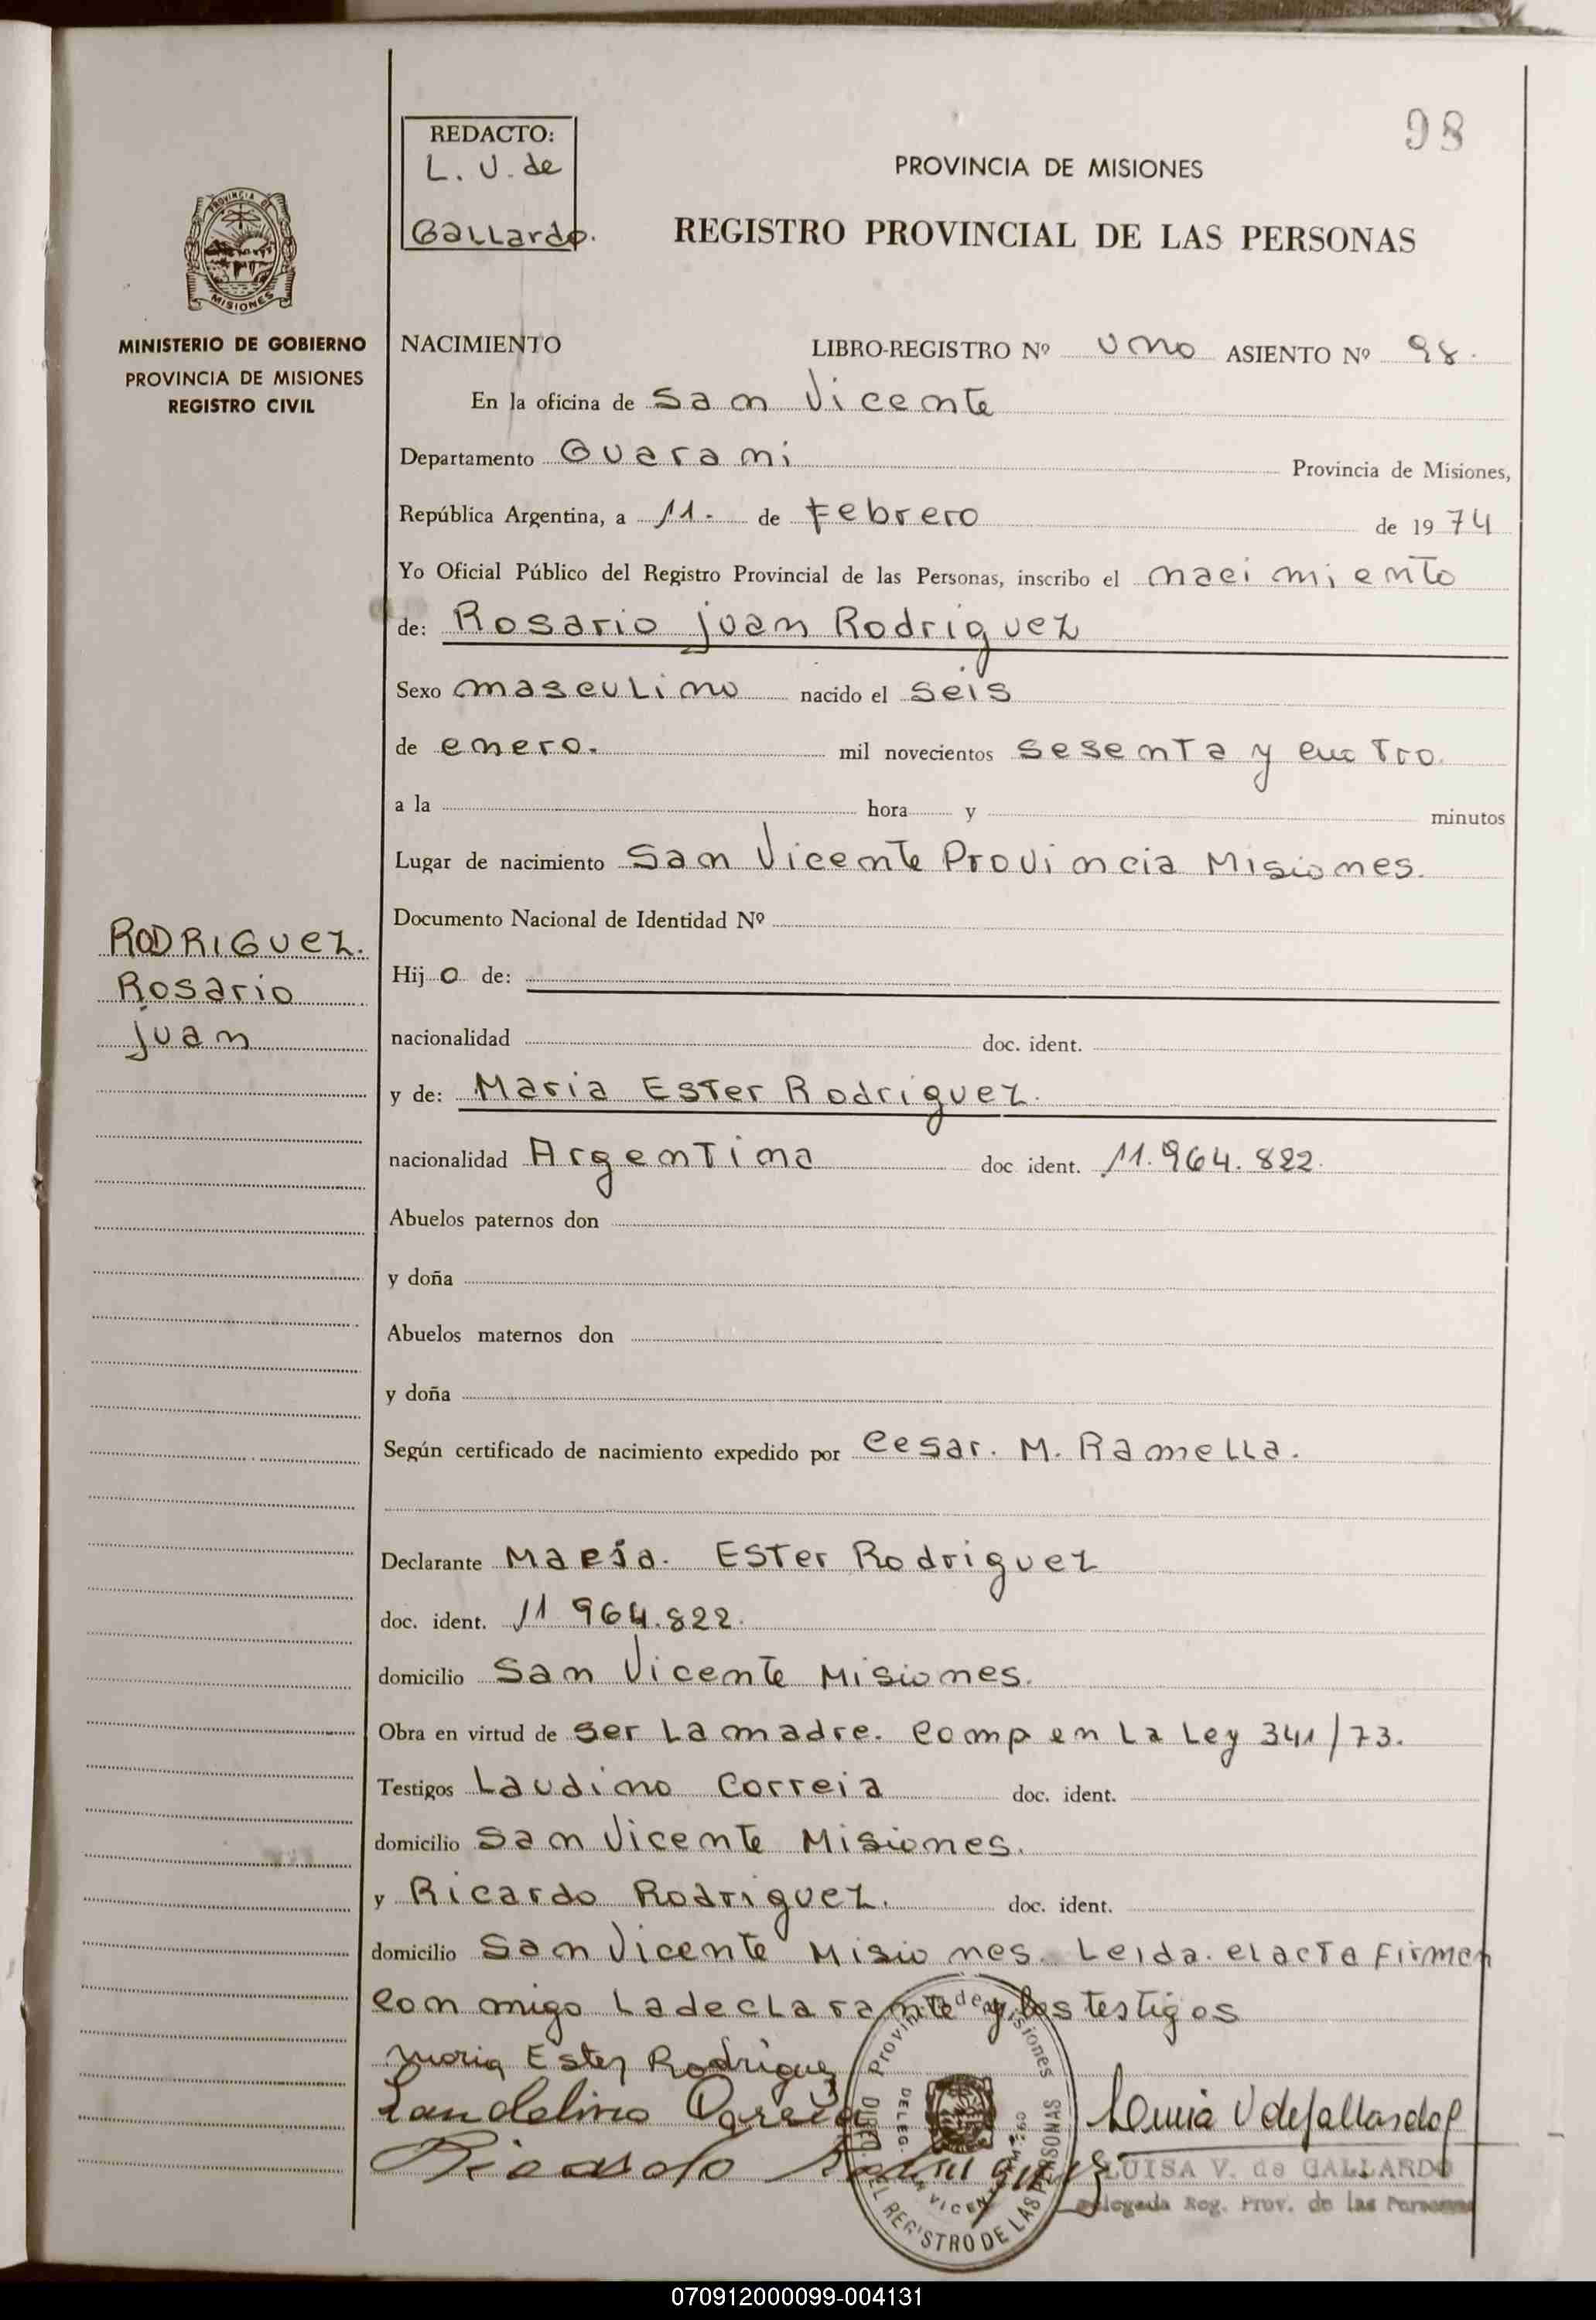 98
REDACTO:
L. V. de
Gallardo.
PROVINCIA DE MISIONES
REGISTRO PROVINCIAL DE LAS PERSONAS
PROVINCIA DE
MISIONES
MINISTERIO DE GOBIERNO
PROVINCIA DE MISIONES
REGISTRO CIVIL
NACIMIENTO LIBRO-REGISTRO Nº uno ASIENTO Nº 98.
En la oficina de San Vicente
Departamento Guarani Provincia de Misiones,
República Argentina, a 11. de Febrero de 1974
Yo Oficial Público del Registro Provincial de las Personas, inscribo el nacimiento
de: Rosario juan Rodriguez
Sexo masculino nacido el seis
de enero. mil novecientos sesenta y cuatro.
a la hora y minutos
Lugar de nacimiento San Vicente Provincia Misiones.
Documento Nacional de Identidad Nº
RODRIGUEZ.
Rosario
juan
Hijo de:
nacionalidad doc. ident.
y de: Maria Ester Rodriguez.
nacionalidad Argentina doc ident. 11.964.822.
Abuelos paternos don
y doña
Abuelos maternos don
y doña
Según certificado de nacimiento expedido por Cesar. M. Ramella.
Declarante Maria. Ester Rodriguez
doc. ident. 11 964.822.
domicilio San Vicente Misiones.
Obra en virtud de ser La madre. comp en La Ley 341/73.
Testigos Laudino Correia doc. ident.
domicilio San Vicente Misiones.
y Ricardo Rodriguez. doc. ident.
domicilio San Vicente Misiones. Leida. el acta Firman
conmigo La declarante y los testigos
Maria Ester Rodriguez
Landelino
Ricardo
Provincia de Misiones
DELEG.
SAN VICENTE
DIREC. DEL REGISTRO DE LAS PERSONAS
V de Gallardo
LUISA V. de GALLARDO
Delegada Reg. Prov. de las Personas
070912000099-004131